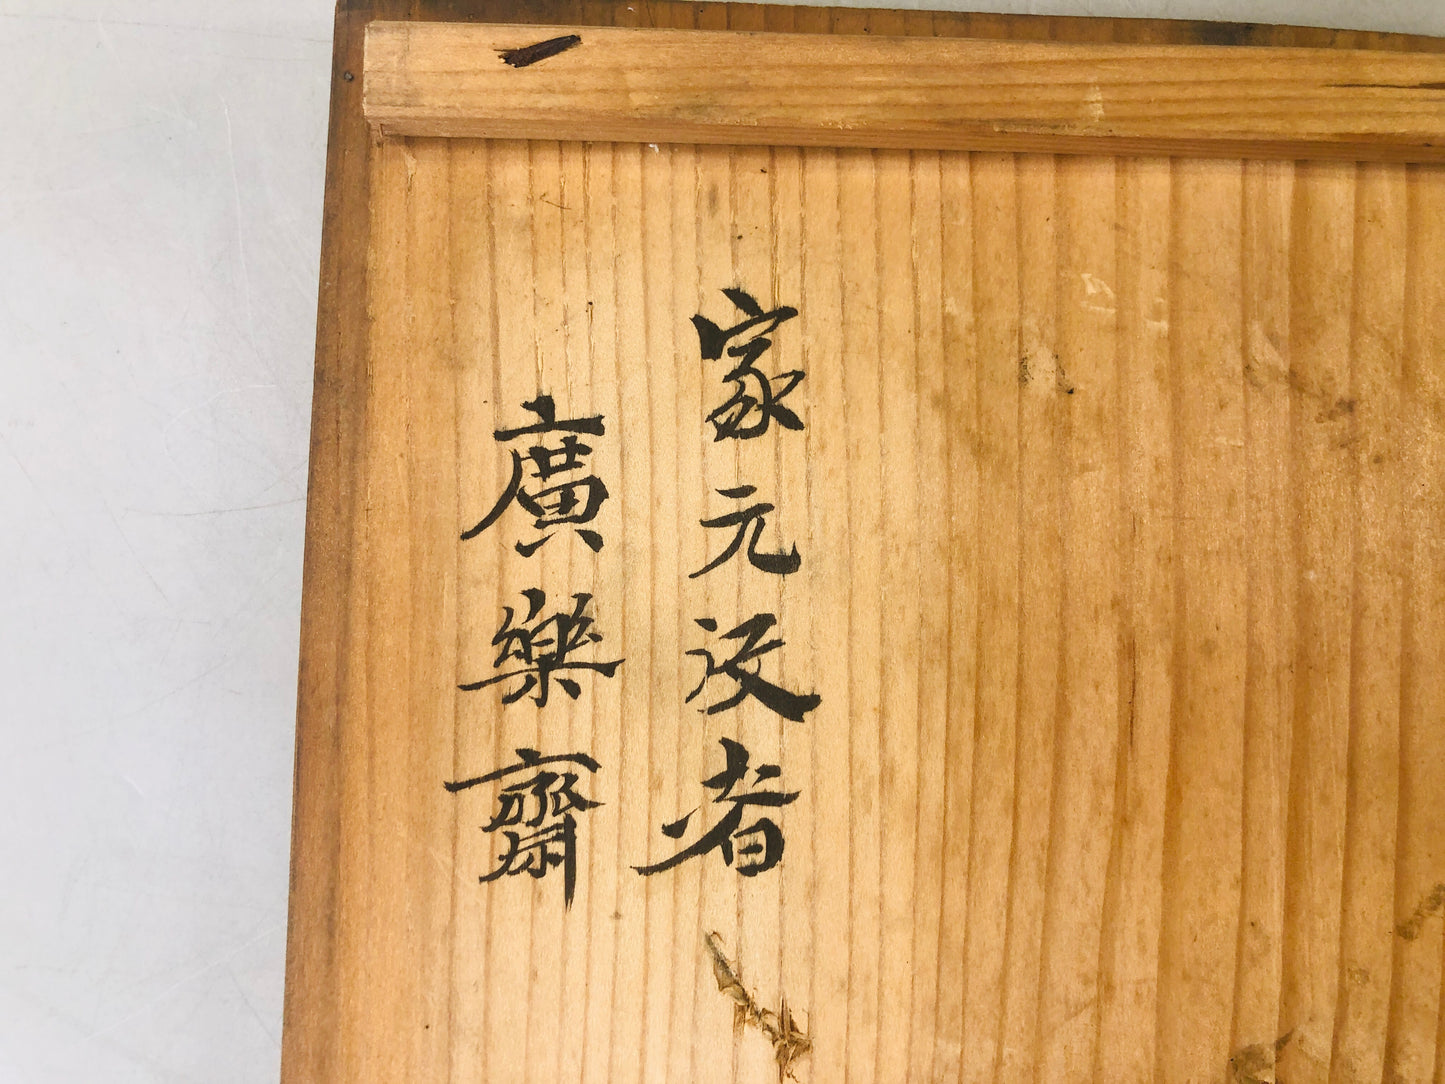 家元役者
廣樂齋